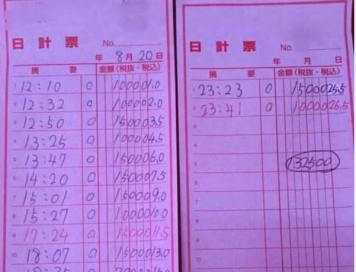 日計票 No.
年 8月 20日
摘 要 金額(税抜・税込)
12:10 0 10000 1.0
12:32 0 10000 2.0
12:50 0 15000 3.5
13:25 0 10000 4.5
13:47 0 15000 6.0
14:20 0 15000 7.5
15:01 0 15000 9.0
15:27 0 10000 10.0
17:24 0 15000 11.5
18:07 0 15000 13.0
日計票 No.
年 月 日
摘 要 金額(税抜・税込)
23:23 0 15000 25.5
23:41 0 10000 26.5
132500